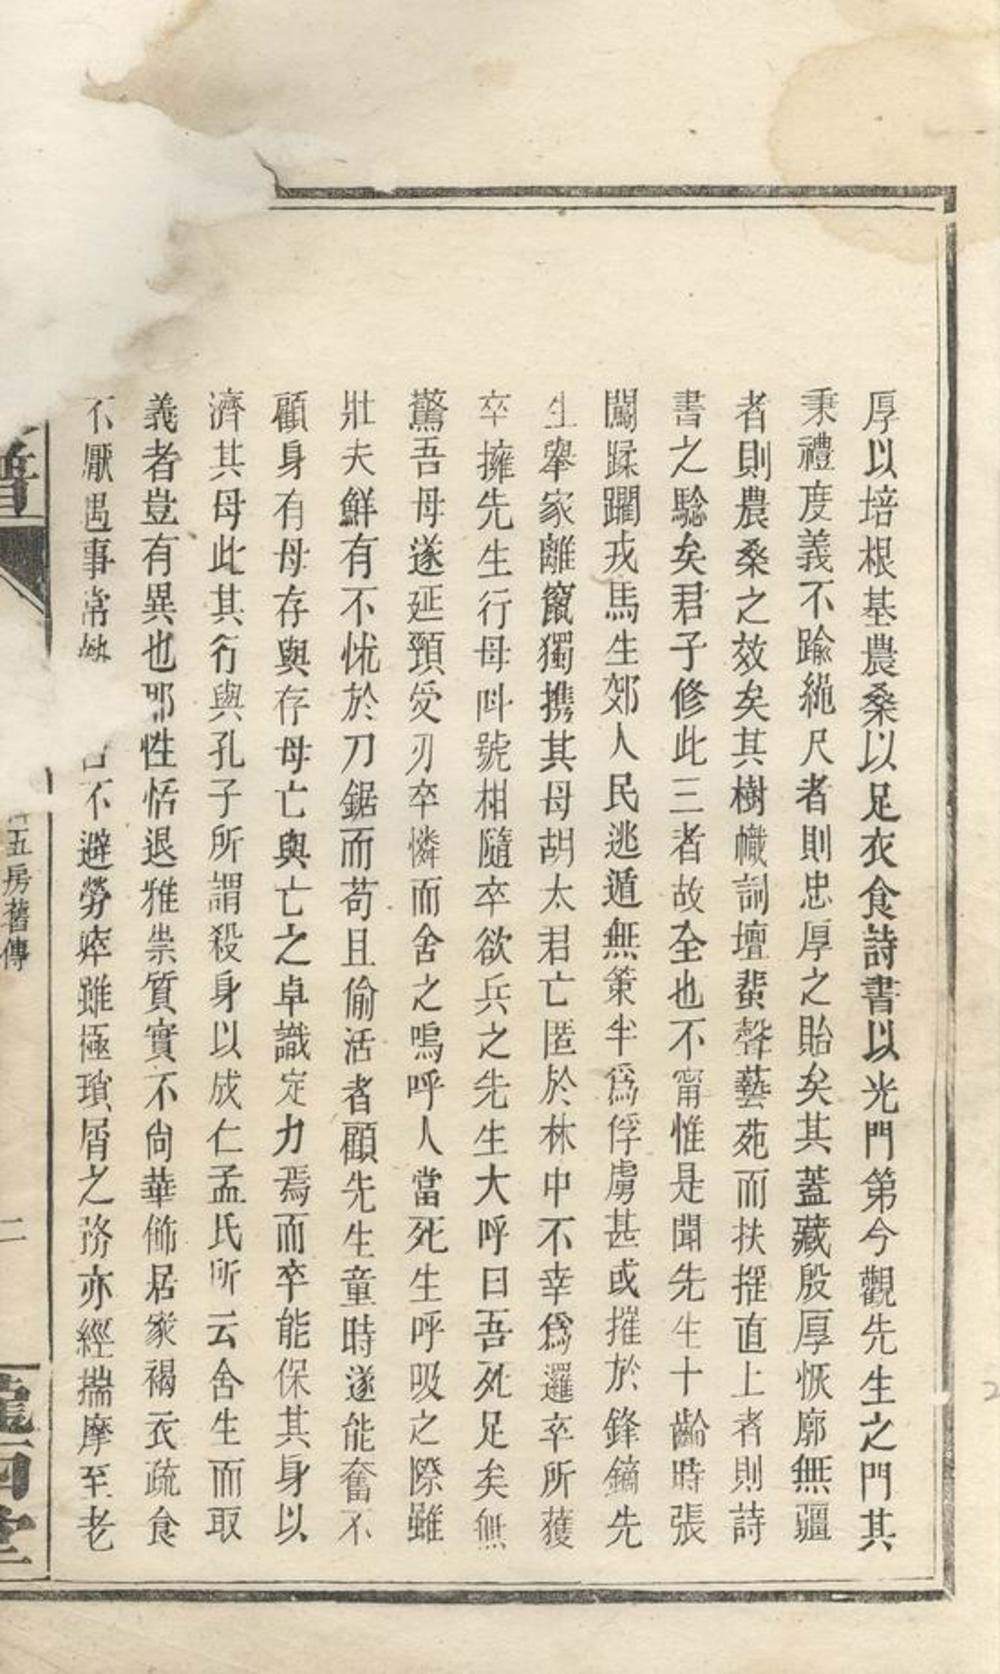 厚以培根基農桑以足衣食詩書以光門第今觀先生之門其
秉禮度義不踰繩尺者則忠厚之貽矣其蓋藏殷厚恢廓無疆
者則農桑之效矣其樹幟詞壇蜚聲藝苑而扶搖直上者則詩
書之驗矣君子修此三者故全也不甯惟是聞先生十齡時張
闖蹂躪戎馬生郊人民逃遁無策半為俘虜甚或摧於鋒鏑先
生舉家離竄獨携其母胡太君亡匿於林中不幸為邏卒所獲
卒擁先生行母呌號相隨卒欲兵之先生大呼曰吾死足矣無
驚吾母遂延頸受刃卒憐而舍之嗚呼人當死生呼吸之際雖
壯夫鮮有不怵於刀鋸而苟且偷活者顧先生童時遂能奮不
顧身有母存與存母亡與亡之卓識定力焉而卒能保其身以
濟其母此其行與孔子所謂殺身以成仁孟氏所云舍生而取
義者豈有異也耶性恬退雅崇質實不尙華飾居家褐衣疏食
不厭遇事常不避勞瘁雖極瑣屑之務亦經揣摩至老
譜
五房舊傳
二
隴西堂